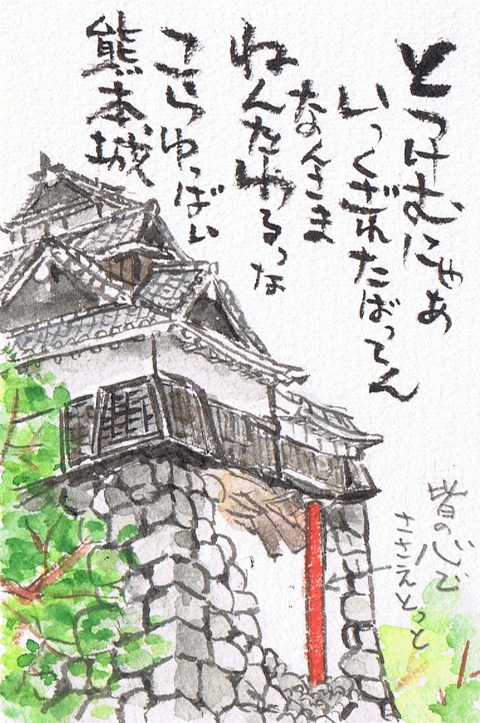 とつけむにゃあ
いっくずれたばってん
なんさま
ねんたわるっな
こらゆっばい
熊本城
皆の心で
ささえとっと